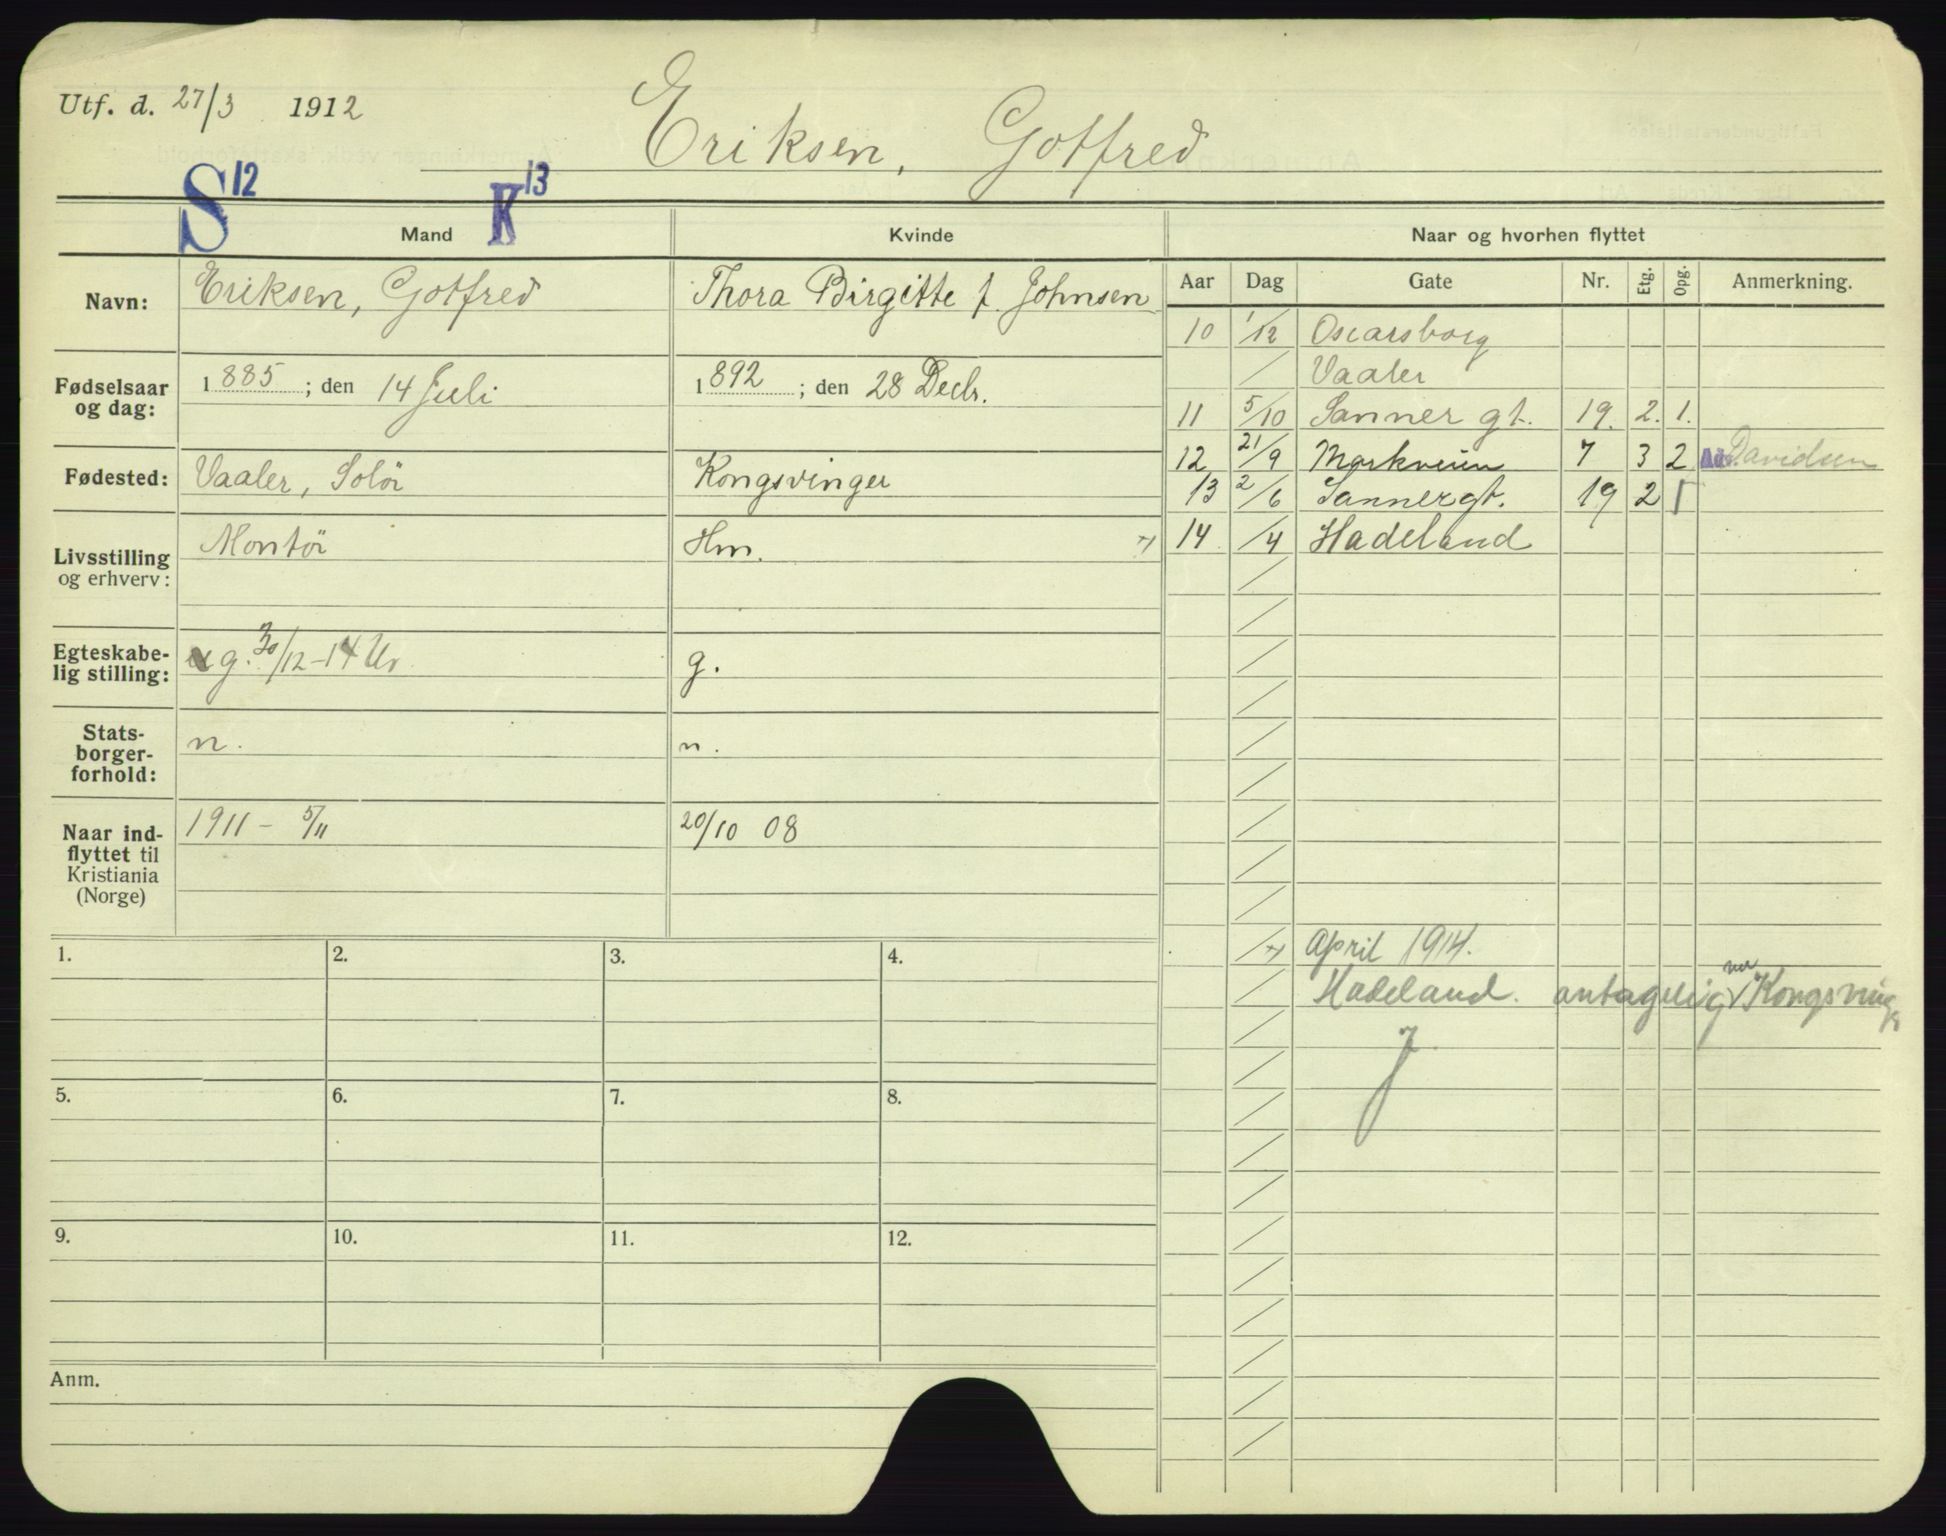 Utf. d. 27/3 1912
Eriksen, Gotfred
S 12 K 13
Mand Kvinde Naar og hvorhen flyttet
Navn: Eriksen, Gotfred Thora Birgitte f. Johnsen
Fødselsaar og dag: 1885; den 14 Juli 1892; den 28 Decbr.
Fødested: Vaaler, Solör Kongsvinger
Livsstilling og erhverv: Montör Hm.
Egteskabelig stilling: g. 30/12-14 Ur g.
Statsborgerforhold: n. n.
Naar indflyttet til Kristiania (Norge) 1911 - 5/11 20/10 08
Aar Dag Gate Nr. Etg. Opg. Anmerkning.
10 1/12 Oscarsborg
/ Vaaler
11 5/10 Sanner gt. 19. 2. 1.
12 21/9 Markveien 7 3 2 Davidsen
13 2/6 Sannergt. 19 2 1
14 /4 Hadeland
April 1914.
Hadeland. antagelig Kongsvinger
1. 2. 3. 4.
5. 6. 7. 8.
9. 10. 11. 12.
Anm.